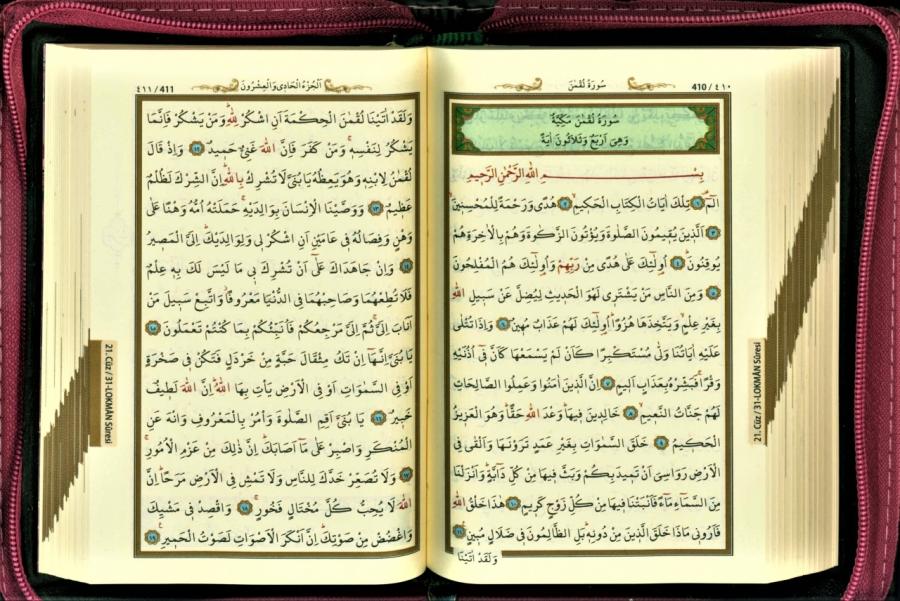 ٤١٠ / 410
سُورَةُ لُقْمٰنَ
سُورَةُ لُقْمٰنَ مَكِّيَّةٌ
وَهِىَ اَرْبَعٌ وَثَلَاثُونَ اٰيَةً
بِسْــــــمِ اللّٰهِ الرَّحْمٰنِ الرَّحِيمِ
الٓمٓ ﴿١﴾ تِلْكَ اٰيَاتُ الْكِتَابِ الْحَكِيمِ ﴿٢﴾ هُدًى وَرَحْمَةً لِلْمُحْسِنِينَ
﴿٣﴾ اَلَّذِينَ يُقِيمُونَ الصَّلٰوةَ وَيُؤْتُونَ الزَّكٰوةَ وَهُمْ بِالْاٰخِرَةِ هُمْ
يُوقِنُونَ ﴿٤﴾ اُو۬لٰٓئِكَ عَلٰى هُدًى مِنْ رَبِّهِمْ وَاُو۬لٰٓئِكَ هُمُ الْمُفْلِحُونَ
﴿٥﴾ وَمِنَ النَّاسِ مَنْ يَشْتَرِى لَهْوَ الْحَدِيثِ لِيُضِلَّ عَنْ سَبِيلِ اللّٰهِ
بِغَيْرِ عِلْمٍ وَيَتَّخِذَهَا هُزُوًا اُو۬لٰٓئِكَ لَهُمْ عَذَابٌ مُهِينٌ ﴿٦﴾ وَاِذَا تُتْلٰى
عَلَيْهِ اٰيَاتُنَا وَلّٰى مُسْتَكْبِرًا كَاَنْ لَمْ يَسْمَعْهَا كَاَنَّ فٓى اُذُنَيْهِ
وَقْرًا فَبَشِّرْهُ بِعَذَابٍ اَلِيمٍ ﴿٧﴾ اِنَّ الَّذِينَ اٰمَنُوا وَعَمِلُوا الصَّالِحَاتِ
لَهُمْ جَنَّاتُ النَّعِيمِ ﴿٨﴾ خَالِدِينَ فِيهَا وَعْدَ اللّٰهِ حَقًّا وَهُوَ الْعَزِيزُ
الْحَكِيمُ ﴿٩﴾ خَلَقَ السَّمٰوَاتِ بِغَيْرِ عَمَدٍ تَرَوْنَهَا وَاَلْقٰى فِى
الْاَرْضِ رَوَاسِىَ اَنْ تَمِيدَ بِكُمْ وَبَثَّ فِيهَا مِنْ كُلِّ دَٓابَّةٍ وَاَنْزَلْنَا
مِنَ السَّمَٓاءِ مَٓاءً فَاَنْبَتْنَا فِيهَا مِنْ كُلِّ زَوْجٍ كَرِيمٍ ﴿١٠﴾ هٰذَا خَلْقُ اللّٰهِ
فَاَرُونِى مَاذَا خَلَقَ الَّذِينَ مِنْ دُونِهِ بَلِ الظَّالِمُونَ فِى ضَلَالٍ مُبِينٍ ﴿١١﴾
وَلَقَدْ اٰتَيْنَا
21. Cüz / 31-LOKMÂN Sûresi
٤١١ / 411
اَلْجُزْءُ الْحَادِى وَالْعِشْرُونَ
وَلَقَدْ اٰتَيْنَا لُقْمٰنَ الْحِكْمَةَ اَنِ اشْكُرْ لِلّٰهِ وَمَنْ يَشْكُرْ فَاِنَّمَا
يَشْكُرُ لِنَفْسِهِ وَمَنْ كَفَرَ فَاِنَّ اللّٰهَ غَنِىٌّ حَمِيدٌ ﴿١٢﴾ وَاِذْ قَالَ
لُقْمٰنُ لِابْنِهِ وَهُوَ يَعِظُهُ يَا بُنَىَّ لَا تُشْرِكْ بِاللّٰهِ اِنَّ الشِّرْكَ لَظُلْمٌ
عَظِيمٌ ﴿١٣﴾ وَوَصَّيْنَا الْاِنْسَانَ بِوَالِدَيْهِ حَمَلَتْهُ اُمُّهُ وَهْنًا عَلٰى
وَهْنٍ وَفِصَالُهُ فِى عَامَيْنِ اَنِ اشْكُرْ لِى وَلِوَالِدَيْكَ اِلَىَّ الْمَصِيرُ
﴿١٤﴾ وَاِنْ جَاهَدَاكَ عَلٰٓى اَنْ تُشْرِكَ بِى مَا لَيْسَ لَكَ بِهِ عِلْمٌ
فَلَا تُطِعْهُمَا وَصَاحِبْهُمَا فِى الدُّنْيَا مَعْرُوفًا وَاتَّبِعْ سَبِيلَ مَنْ
اَنَابَ اِلَىَّ ثُمَّ اِلَىَّ مَرْجِعُكُمْ فَاُنَبِّئُكُمْ بِمَا كُنْتُمْ تَعْمَلُونَ ﴿١٥﴾
يَا بُنَىَّ اِنَّهَٓا اِنْ تَكُ مِثْقَالَ حَبَّةٍ مِنْ خَرْدَلٍ فَتَكُنْ فِى صَخْرَةٍ
اَوْ فِى السَّمٰوَاتِ اَوْ فِى الْاَرْضِ يَأْتِ بِهَا اللّٰهُ اِنَّ اللّٰهَ لَطِيفٌ
خَبِيرٌ ﴿١٦﴾ يَا بُنَىَّ اَقِمِ الصَّلٰوةَ وَأْمُرْ بِالْمَعْرُوفِ وَانْهَ عَنِ
الْمُنْكَرِ وَاصْبِرْ عَلٰى مَٓا اَصَابَكَ اِنَّ ذٰلِكَ مِنْ عَزْمِ الْاُمُورِ
﴿١٧﴾ وَلَا تُصَعِّرْ خَدَّكَ لِلنَّاسِ وَلَا تَمْشِ فِى الْاَرْضِ مَرَحًا اِنَّ
اللّٰهَ لَا يُحِبُّ كُلَّ مُخْتَالٍ فَخُورٍ ﴿١٨﴾ وَاقْصِدْ فِى مَشْيِكَ
وَاغْضُضْ مِنْ صَوْتِكَ اِنَّ اَنْكَرَ الْاَصْوَاتِ لَصَوْتُ الْحَمِيرِ ﴿١٩﴾
21. Cüz / 31-LOKMÂN Sûresi